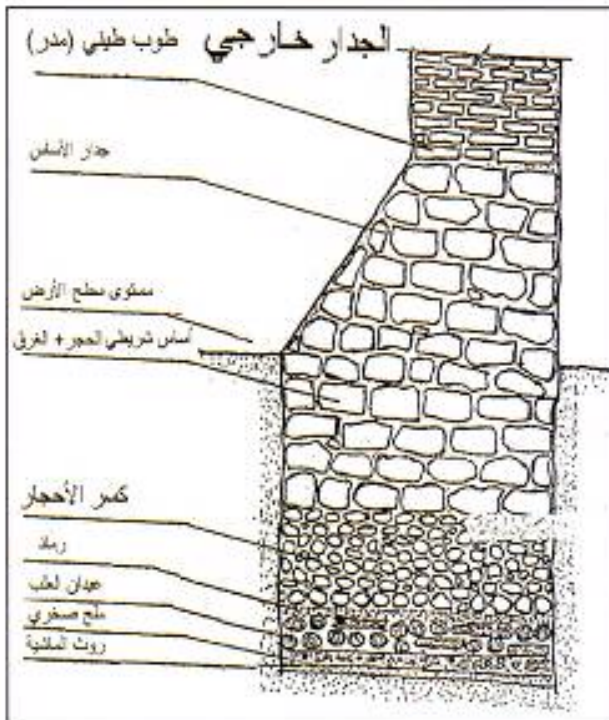 الجدار خارجي
طوب طيني (مدر)
جدار الأساس
مستوى سطح الأرض
أساس شريطي الحجر + الغرق
كسر الأحجار
رماد
عيدان لعلب
ملح صخري
روث الماشية